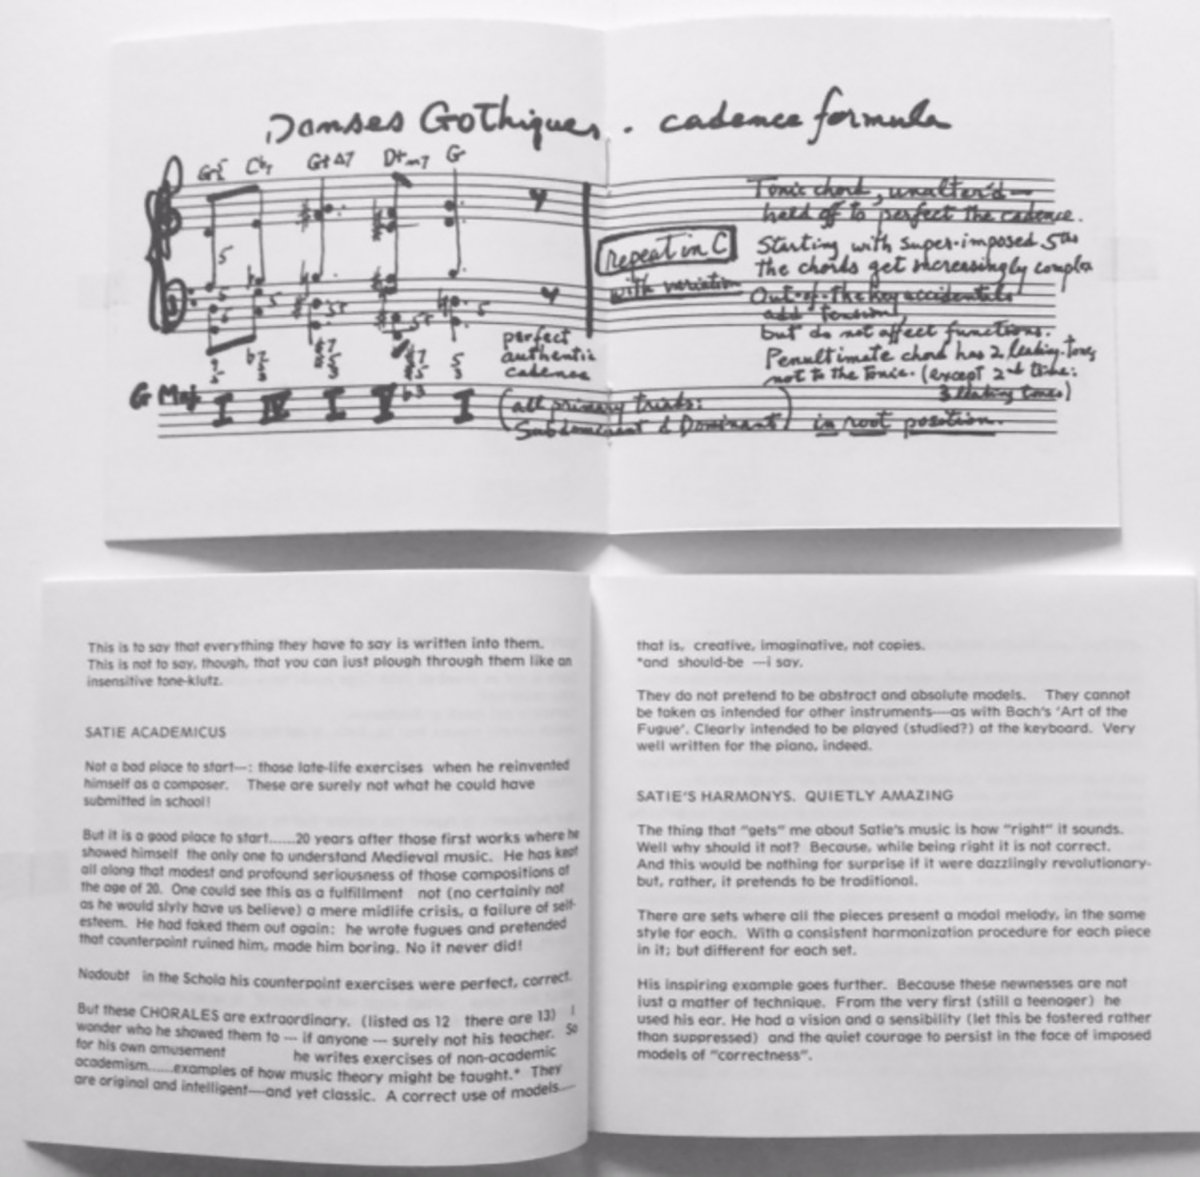 Danses Gothiques. cadence formula
G5 C G+Δ7 D+m7 G
Tonic chord, unalter'd—
held off to perfect the cadence.
repeat in C
with variation
Starting with super-imposed 5ths
the chords get increasingly complex
Out-of-the-key accidentals
add tension,
but do not affect functions.
perfect
authentic
cadence
Penultimate chord has 2 leading-tones
not to the Tonic. (except 2nd time:
3 leading tones)
G Maj I IV I V I (all primary triads:
Subdominant & Dominant) in root position.
This is to say that everything they have to say is written into them.
This is not to say, though, that you can just plough through them like an
insensitive tone-klutz.
SATIE ACADEMICUS
Not a bad place to start—: those late-life exercises when he reinvented
himself as a composer. These are surely not what he could have
submitted in school!
But it is a good place to start......20 years after those first works where he
showed himself the only one to understand Medieval music. He has kept
all along that modest and profound seriousness of those compositions of
the age of 20. One could see this as a fulfillment not (no certainly not
as he would slyly have us believe) a mere midlife crisis, a failure of self-
esteem. He had faked them out again: he wrote fugues and pretended
that counterpoint ruined him, made him boring. No it never did!
Nodoubt in the Schola his counterpoint exercises were perfect, correct.
But these CHORALES are extraordinary. (listed as 12 there are 13) I
wonder who he showed them to --- if anyone --- surely not his teacher. So
for his own amusement he writes exercises of non-academic
academism......examples of how music theory might be taught.* They
are original and intelligent—-and yet classic. A correct use of models----
that is, creative, imaginative, not copies.
*and should-be —i say.
They do not pretend to be abstract and absolute models. They cannot
be taken as intended for other instruments—-as with Bach's 'Art of the
Fugue'. Clearly intended to be played (studied?) at the keyboard. Very
well written for the piano, indeed.
SATIE'S HARMONYS. QUIETLY AMAZING
The thing that "gets" me about Satie's music is how "right" it sounds.
Well why should it not? Because, while being right it is not correct.
And this would be nothing for surprise if it were dazzlingly revolutionary-
but, rather, it pretends to be traditional.
There are sets where all the pieces present a modal melody, in the same
style for each. With a consistent harmonization procedure for each piece
in it; but different for each set.
His inspiring example goes further. Because these newnesses are not
just a matter of technique. From the very first (still a teenager) he
used his ear. He had a vision and a sensibility (let this be fostered rather
than suppressed) and the quiet courage to persist in the face of imposed
models of "correctness".